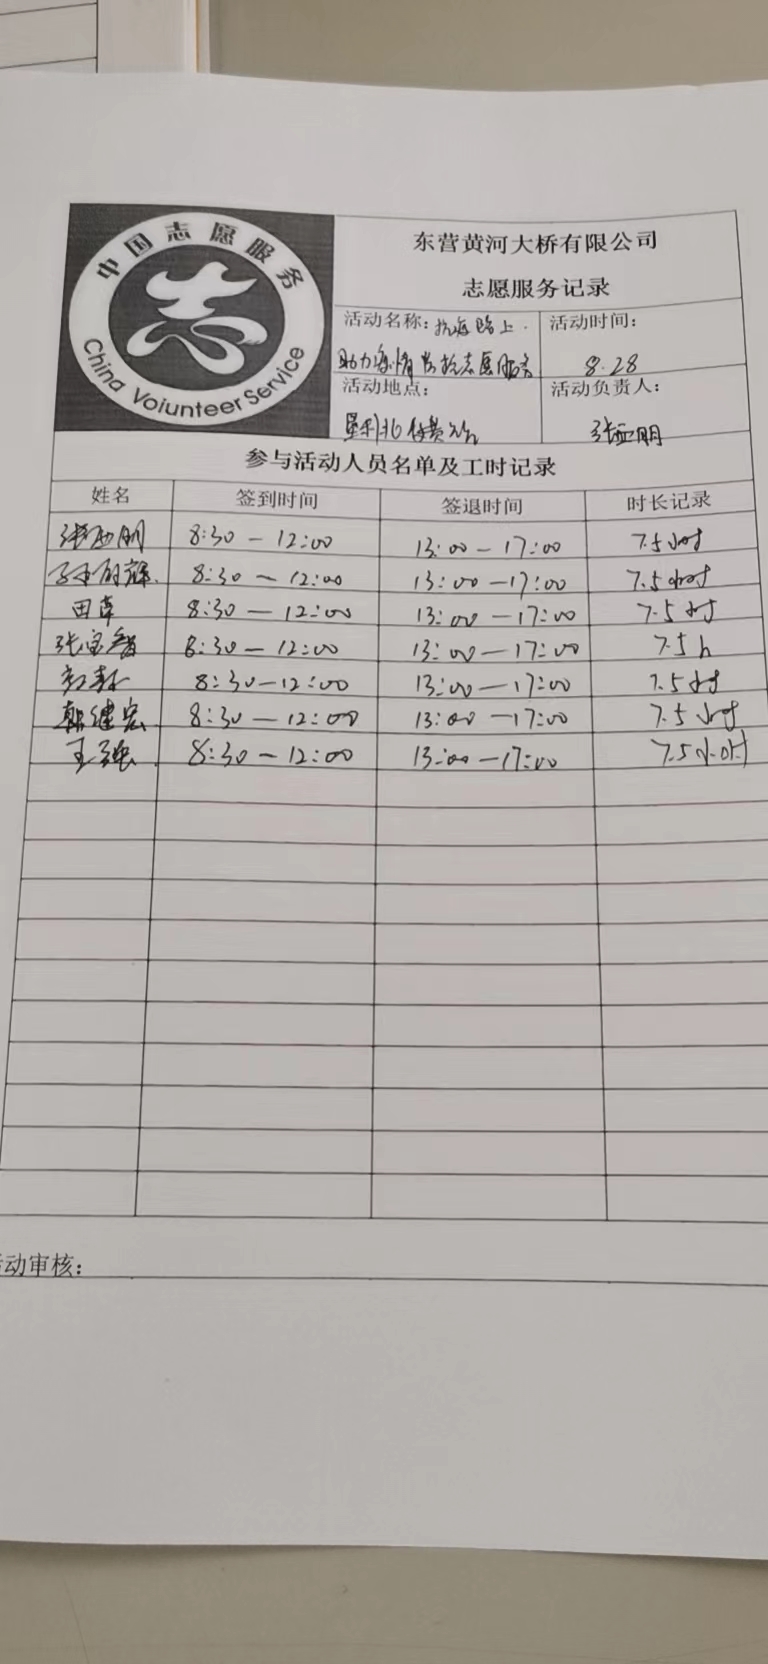 中国志愿服务
China Voiunteer Service
东营黄河大桥有限公司
志愿服务记录
活动名称：抗疫路上.
助力疫情防控志愿服务
活动时间：
8.28
活动地点：
垦利北收费站
活动负责人：
张亚明
参与活动人员名单及工时记录
姓名 签到时间 签退时间 时长记录
张亚明 8:30 — 12:00 13:00 — 17:00 7.5小时
8:30 — 12:00 13:00 — 17:00 7.5小时
田卓 8:30 — 12:00 13:00 — 17:00 7.5小时
张宝智 8:30 — 12:00 13:00 — 17:00 7.5h
8:30 — 12:00 13:00 — 17:00 7.5小时
8:30 — 12:00 13:00 — 17:00 7.5小时
王强 8:30 — 12:00 13:00 — 17:00 7.5小时
动审核：